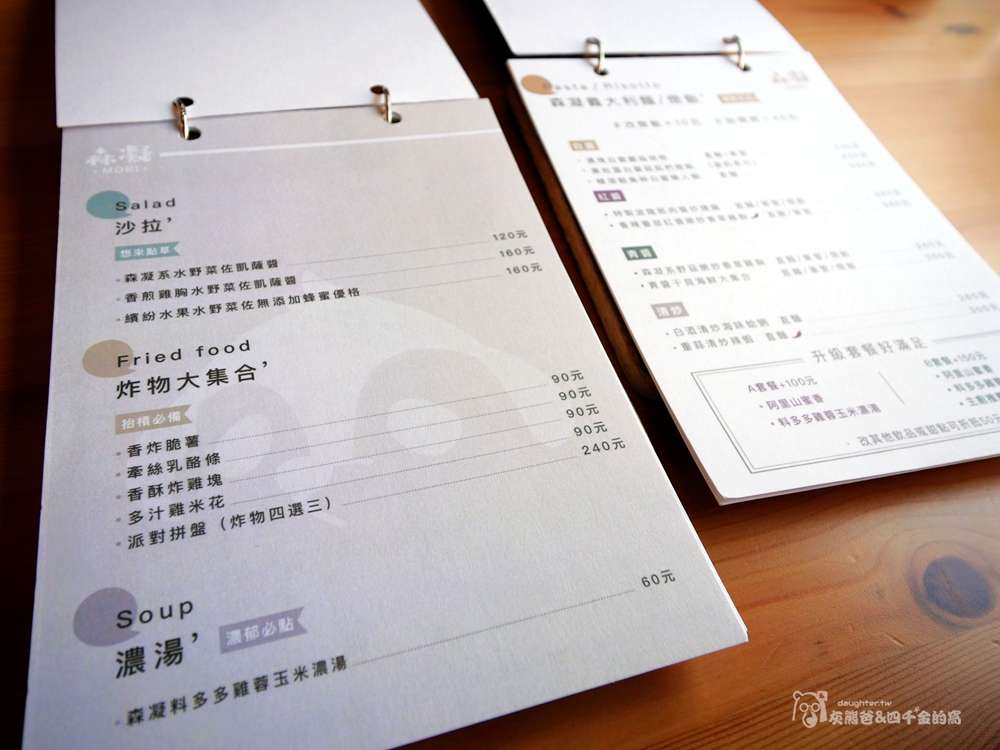 森凝
MONI
Salad
沙拉’
想來點草
森凝系水野菜佐凱薩醬 120元
香煎雞胸水野菜佐凱薩醬 160元
繽紛水果水野菜佐無添加蜂蜜優格 160元
Fried food
炸物大集合’
抬槓必備
香炸脆薯 90元
牽絲乳酪條 90元
香酥炸雞塊 90元
多汁雞米花 90元
派對拼盤（炸物四選三） 240元
Soup
濃湯’
濃郁必點
森凝料多多雞蓉玉米濃湯 60元
Pasta / Risotto
森凝義大利麵/燉飯’
白醬
紅醬
青醬
青醬干貝海鮮大集合 直麵/筆管/燉飯
清炒
白酒清炒海味蛤蜊 直麵
重蒜清炒辣蝦 直麵
升級套餐好滿足
A套餐+100元
阿里山蜜香
料多多雞蓉玉米濃湯
B套餐+150元
改其他飲品或甜點可折抵50元
daughter.tw
灰熊爸&四千金的窩